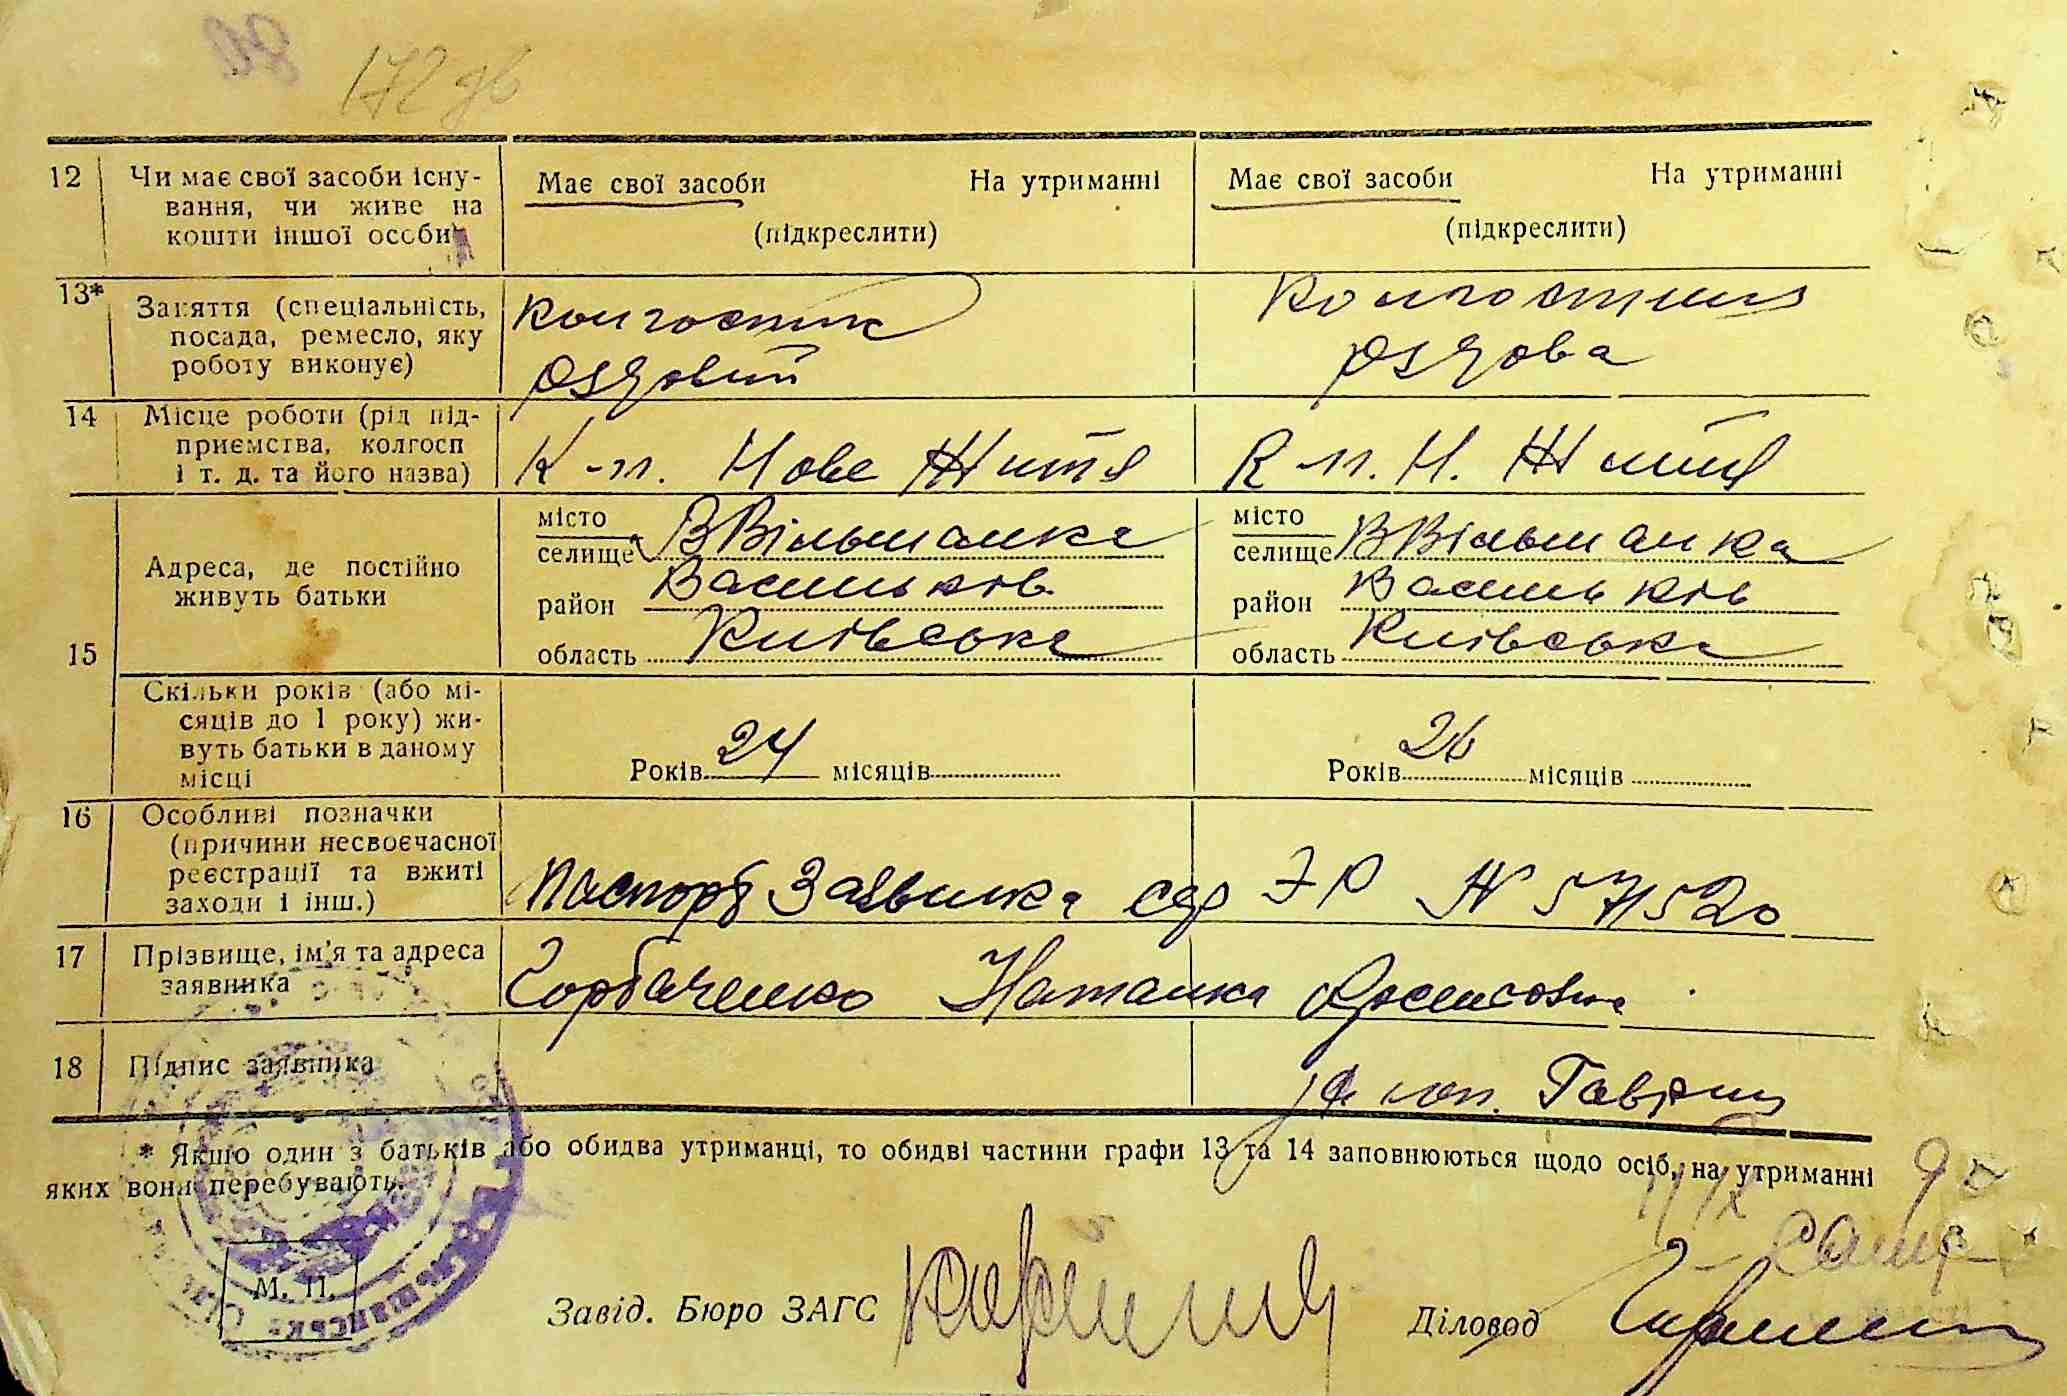 172 зв
12 Чи має свої засоби існу-
вання, чи живе на
кошти іншої особи
Має свої засоби На утриманні
(підкреслити)
Має свої засоби На утриманні
(підкреслити)
13* Заняття (спеціальність,
посада, ремесло, яку
роботу виконує)
Колгоспник
рядовий
Колгоспниця
рядова
14 Місце роботи (рід під-
приємства, колгосп
і т. д. та його назва)
К-п. Нове Життя
К-п. Н. Життя
15 Адреса, де постійно
живуть батьки
місто
селище В Вільшанка
район Васильків
область Київська
місто
селище В Вільшанка
район Васильків
область Київська
Скільки років (або мі-
сяців до 1 року) жи-
вуть батьки в даному
місці
Років 24 місяців
Років 26 місяців
16 Особливі позначки
(причини несвоєчасної
реєстрації та вжиті
заходи і інш.)
Паспорт Заявника сер ЭР № 571520
17 Прізвище, ім'я та адреса
заявника
Горбаченко Наталка
18 Підпис заявника
* Якщо один з батьків або обидва утриманці, то обидві частини графи 13 та 14 заповнюються щодо осіб, на утриманні
яких вони перебувають.
М. П.
Завід. Бюро ЗАГС
Діловод